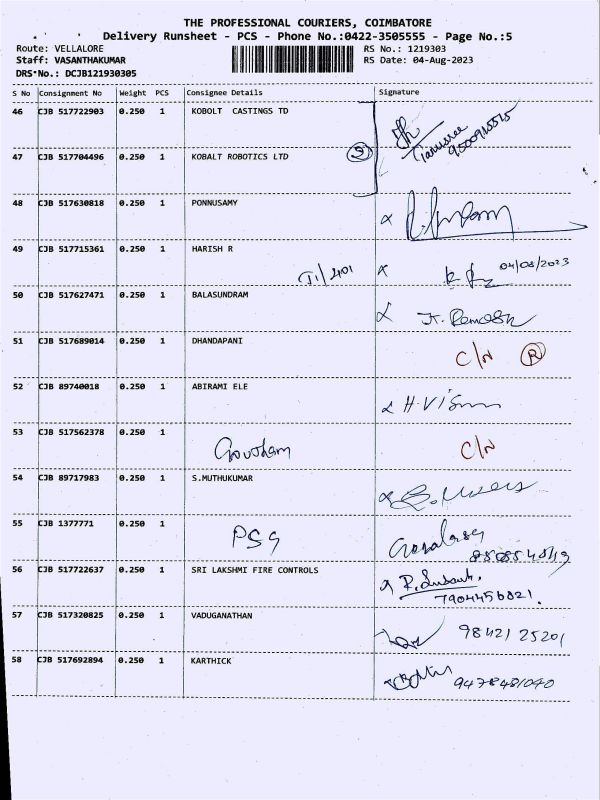 THE PROFESSIONAL COURIERS, COIMBATORE
Delivery Runsheet - PCS - Phone No.:0422-3505555 - Page No.:5
Route: VELLALORE RS No.: 1219303
Staff: VASANTHAKUMAR RS Date: 04-Aug-2023
DRS No.: DCJB121930305
S No Consignment No Weight PCS Consignee Details Signature
46 CJB 517722903 0.250 1 KOBOLT CASTINGS TD
47 CJB 517704496 0.250 1 KOBALT ROBOTICS LTD 2
48 CJB 517630818 0.250 1 PONNUSAMY
49 CJB 517715361 0.250 1 HARISH R 04/08/2023
50 CJB 517627471 0.250 1 BALASUNDRAM
51 CJB 517689014 0.250 1 DHANDAPANI C/N R
52 CJB 89740018 0.250 1 ABIRAMI ELE
53 CJB 517562378 0.250 1 C/N
54 CJB 89717983 0.250 1 S.MUTHUKUMAR
55 CJB 1377771 0.250 1 PSG
56 CJB 517722637 0.250 1 SRI LAKSHMI FIRE CONTROLS
7904456821.
57 CJB 517320825 0.250 1 VADUGANATHAN 98421 25201
58 CJB 517692894 0.250 1 KARTHICK 9478481040